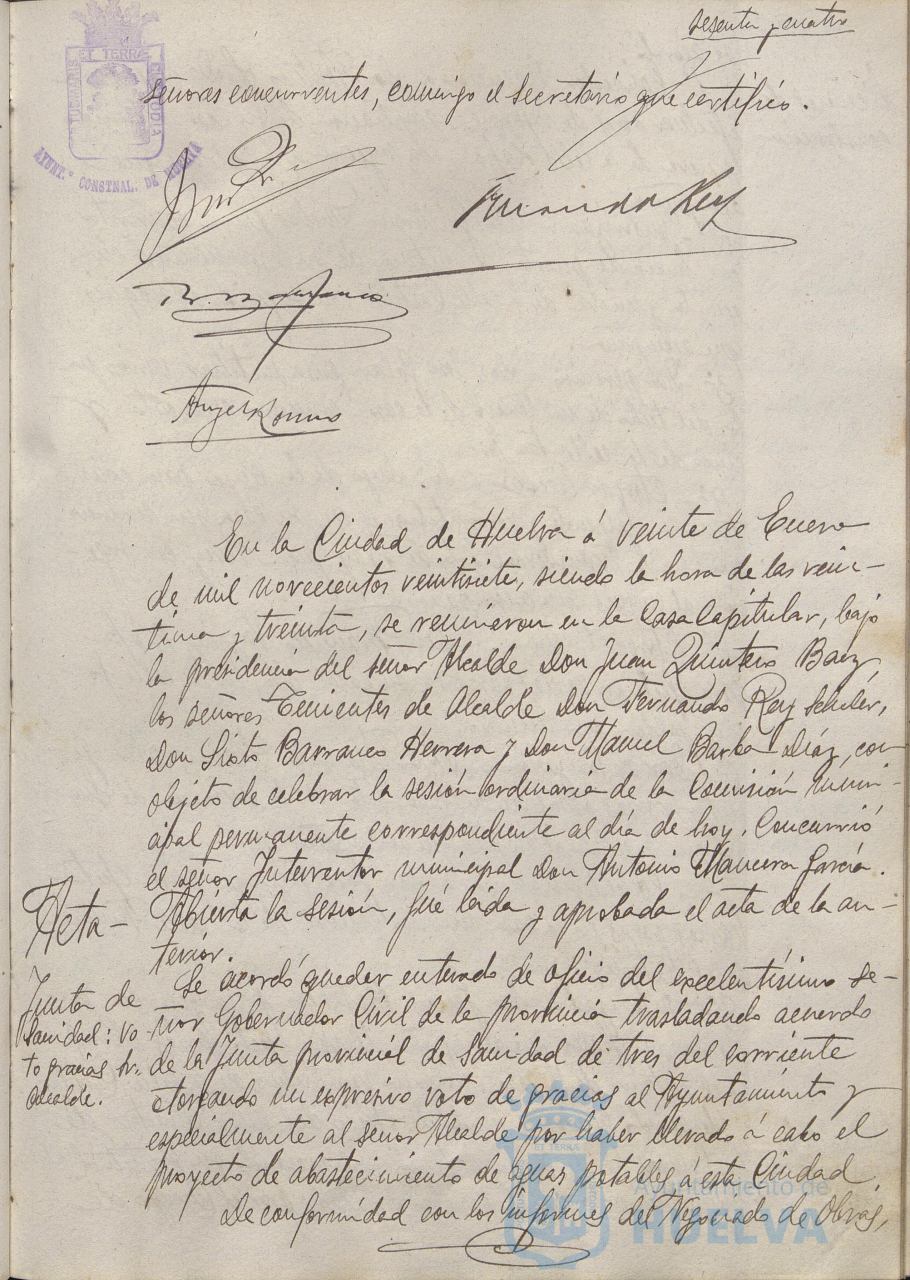 sesenta y cuatro
señores concurrentes, conmigo el secretario que certifico.
ET TERRAE CUSTODIA
AYUNT.º CONSTNAL. DE HUELVA
Fernando Rey
Angel Romero
En la Ciudad de Huelva á veinte de Enero
de mil novecientos veintisiete, siendo la hora de las vein-
tiuna y treinta, se reunieron en la Casa Capitular, bajo
la presidencia del señor Alcalde Don Juan Quintero Baez
los señores Tenientes de Alcalde Don Fernando Rey
Don Sixto Barranco Herrera y Don Manuel Barba Díaz, con
objeto de celebrar la sesión ordinaria de la Comisión muni-
cipal permanente correspondiente al día de hoy. Concurrió
el señor Interventor municipal Don Antonio Mancera García.
Acta-
Abierta la sesión, fué leida y aprobada el acta de la an-
terior.
Junta de
Sanidad: vo
to gracias Sr.
Alcalde.
Se acordó quedar enterado de oficio del excelentísimo se-
ñor Gobernador Civil de la provincia trasladando acuerdo
de la Junta provincial de Sanidad de tres del corriente
otorgando un expresivo voto de gracias al Ayuntamiento y
especialmente al señor Alcalde por haber llevado á cabo el
proyecto de abastecimiento de aguas potables á esta Ciudad.
De conformidad con los informes del Negociado de Obras,
Ayuntamiento de
HUELVA